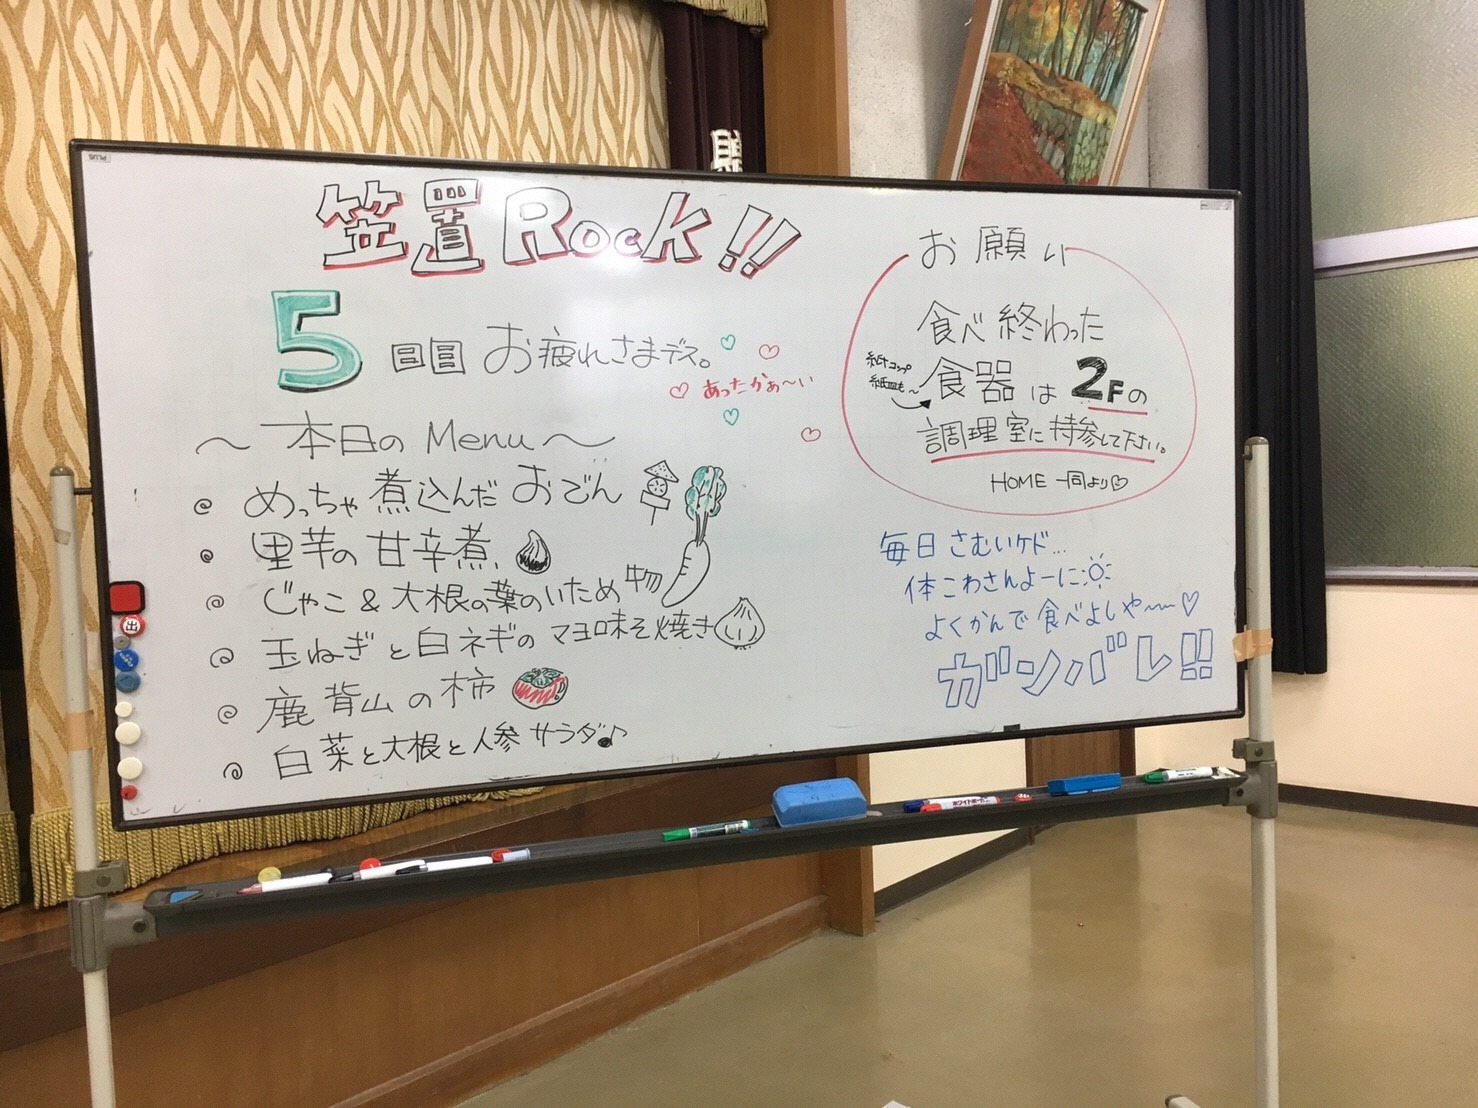 笠置Rock!!
5日目 お疲れさまデス。
あったかぁ〜い
〜本日のMenu〜
めっちゃ煮込んだおでん
里芋の甘辛煮
じゃこ&大根の葉のいため物
玉ねぎと白ネギのマヨ味そ焼き
鹿背山の柿
白菜と大根と人参サラダ♪
お願い
食べ終わった
紙コップ
紙皿も〜
食器は2Fの
調理室に持参して下さい。
HOME一同より♡
毎日さむいケド…
体こわさんよーに
よくかんで食べよしや〜〜♡
ガンバレ!!
出
PLUS